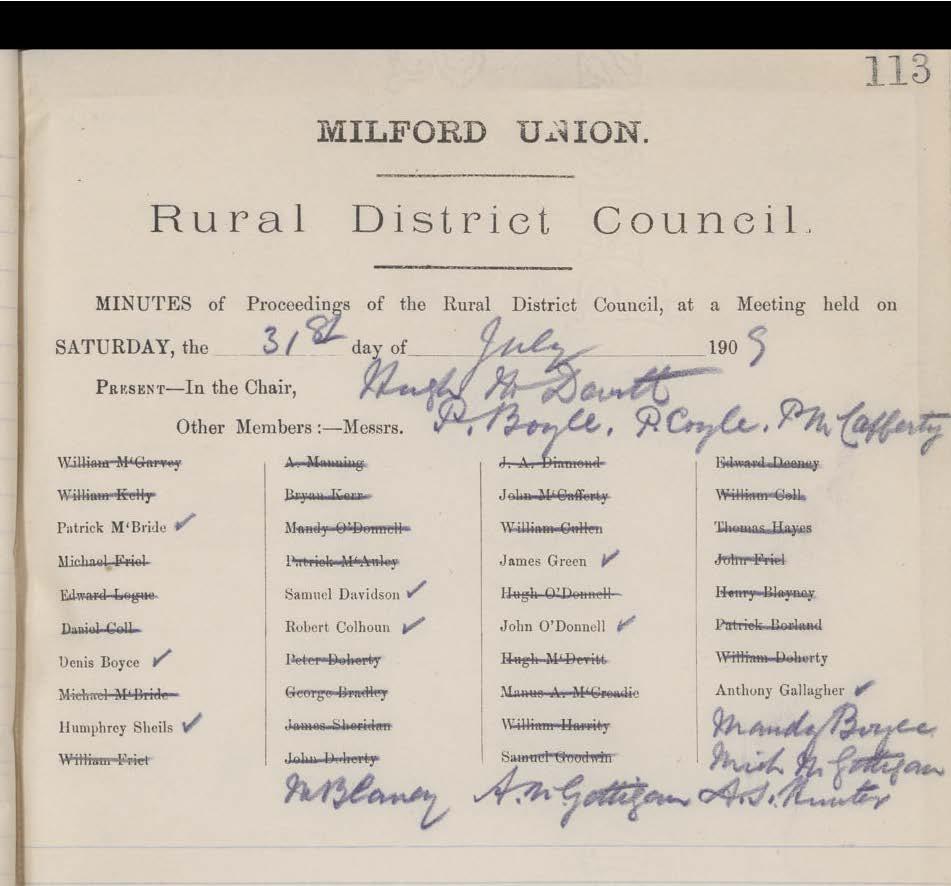 113
MILFORD UNION.
Rural District Council.
MINUTES of Proceedings of the Rural District Council, at a Meeting held on
SATURDAY, the 31st day of July 1909
PRESENT—In the Chair, Hugh McDevitt
Other Members :—Messrs. P. Boyle, P. Coyle, P McCafferty
William M‘Garvey A. Manning J. A. Diamond Edward Deeney
William Kelly Bryan Kerr John M‘Cafferty William Coll
Patrick M‘Bride ✓ Mandy O’Donnell William Cullen Thomas Hayes
Michael Friel Patrick M‘Auley James Green ✓ John Friel
Edward Logue Samuel Davidson ✓ Hugh O’Donnell Henry Blayney
Daniel Coll Robert Colhoun ✓ John O’Donnell ✓ Patrick Borland
Denis Boyce ✓ Peter Doherty Hugh M‘Devitt William Doherty
Michael M‘Bride George Bradley Manus A. M‘Creadie Anthony Gallagher ✓
Humphrey Sheils ✓ James Sheridan William Harrity Mandy Boyce
William Friel John Doherty Samuel Goodwin Mich McGettigan
M Blaney A. McGettigan A. S. Hunter